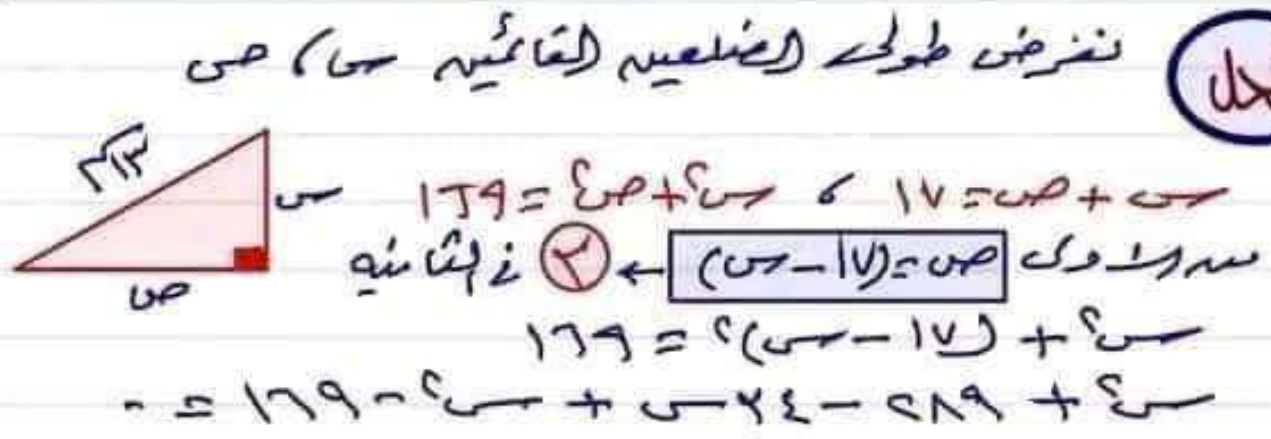 الحل
نفرض طولى الضلعين القائمين س، ص
س + ص = ١٧ ، س٢ + ص٢ = ١٦٩
من الاولى ص = (١٧ - س) ← ٣ فى الثانيه
س٢ + (١٧ - س)٢ = ١٦٩
س٢ + ٢٨٩ - ٣٤س + س٢ - ١٦٩ = ٠
١٣م
س
ص